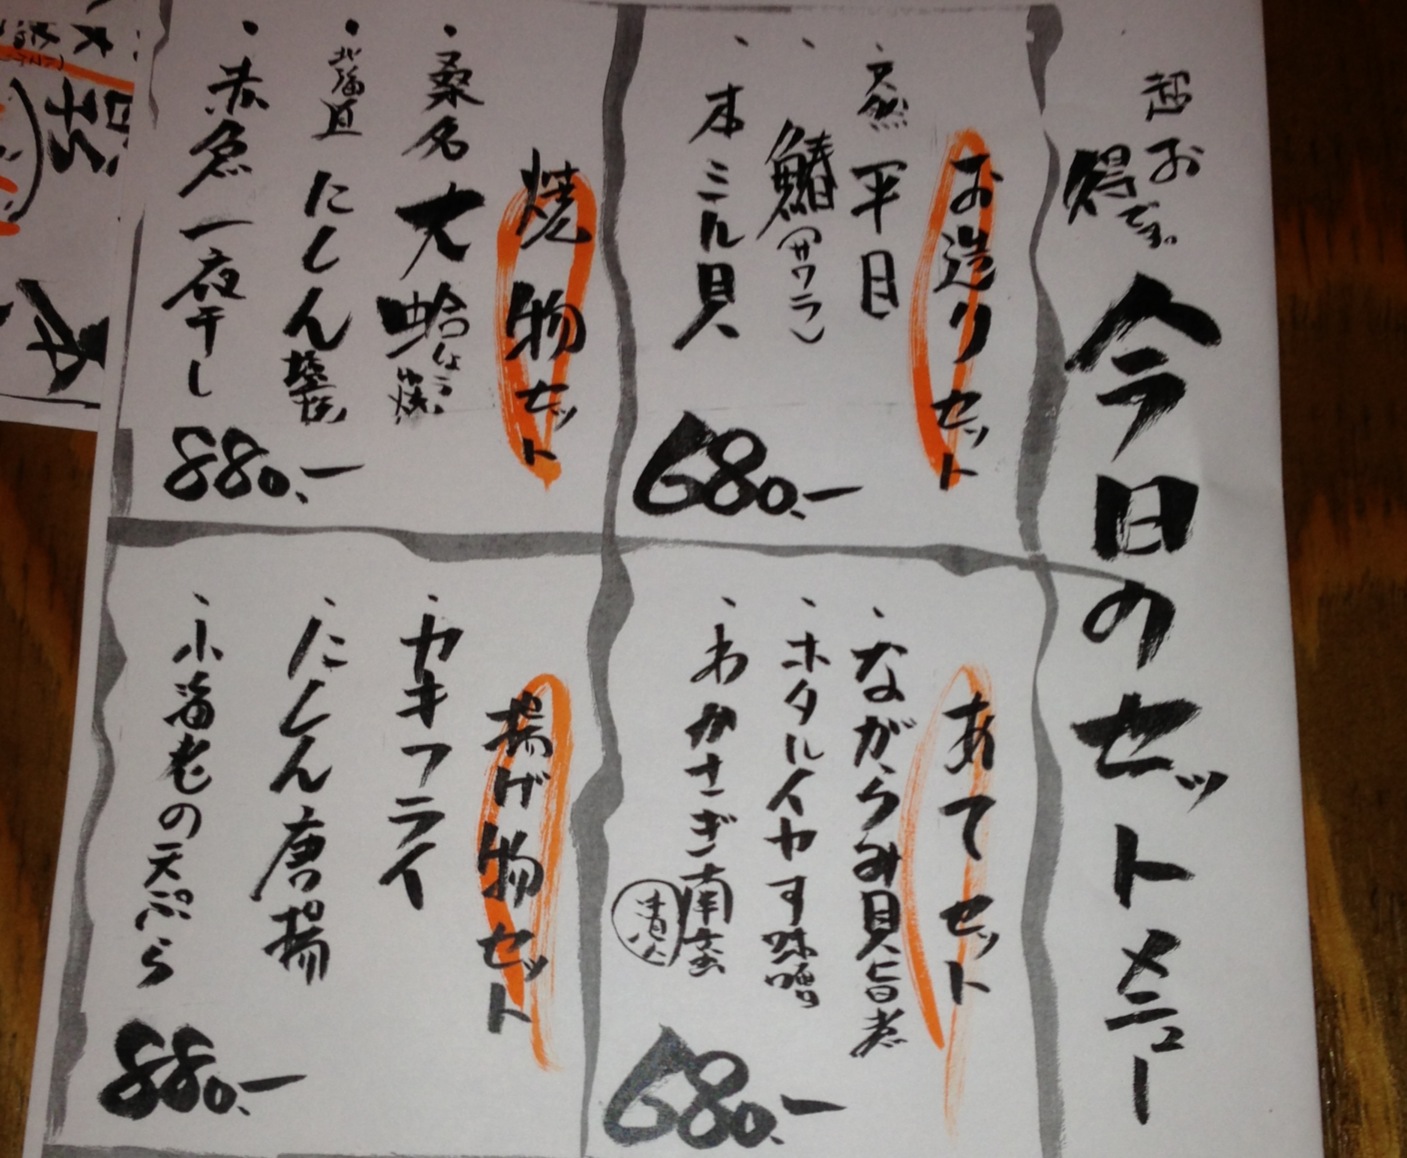 超お得です。
今日のセットメニュー
お造りセット
・天然 平目
・鰆(サワラ)
・本ミル貝
680.-
焼物セット
・桑名 大蛤しょうゆ焼
・北海道 にしん 塩焼
・赤魚一夜干し
880.-
あてセット
・ながらみ貝旨煮
・ホタルイカす味噌
・わかさぎ南蛮漬け
680.-
揚げ物セット
・カキフライ
・にしん唐揚
・小海老の天ぷら
880.-